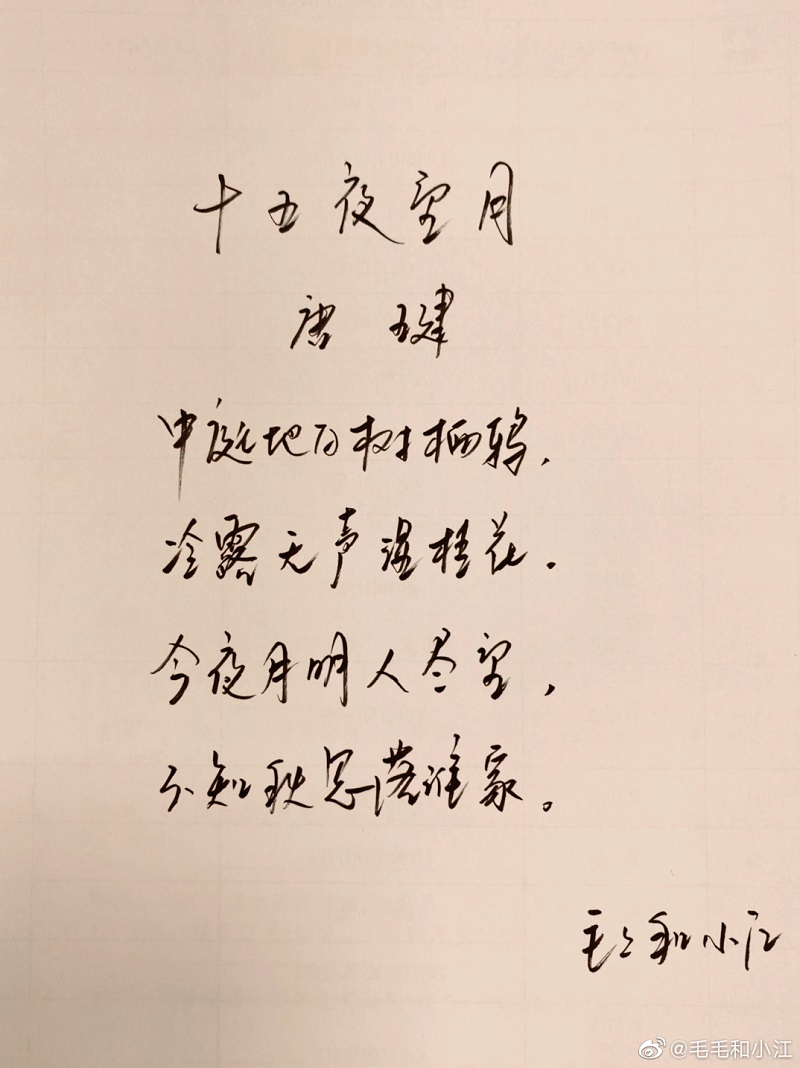 十五夜望月
唐 王建
中庭地白树栖鸦，
冷露无声湿桂花．
今夜月明人尽望，
不知秋思落谁家。
毛毛和小江
@毛毛和小江